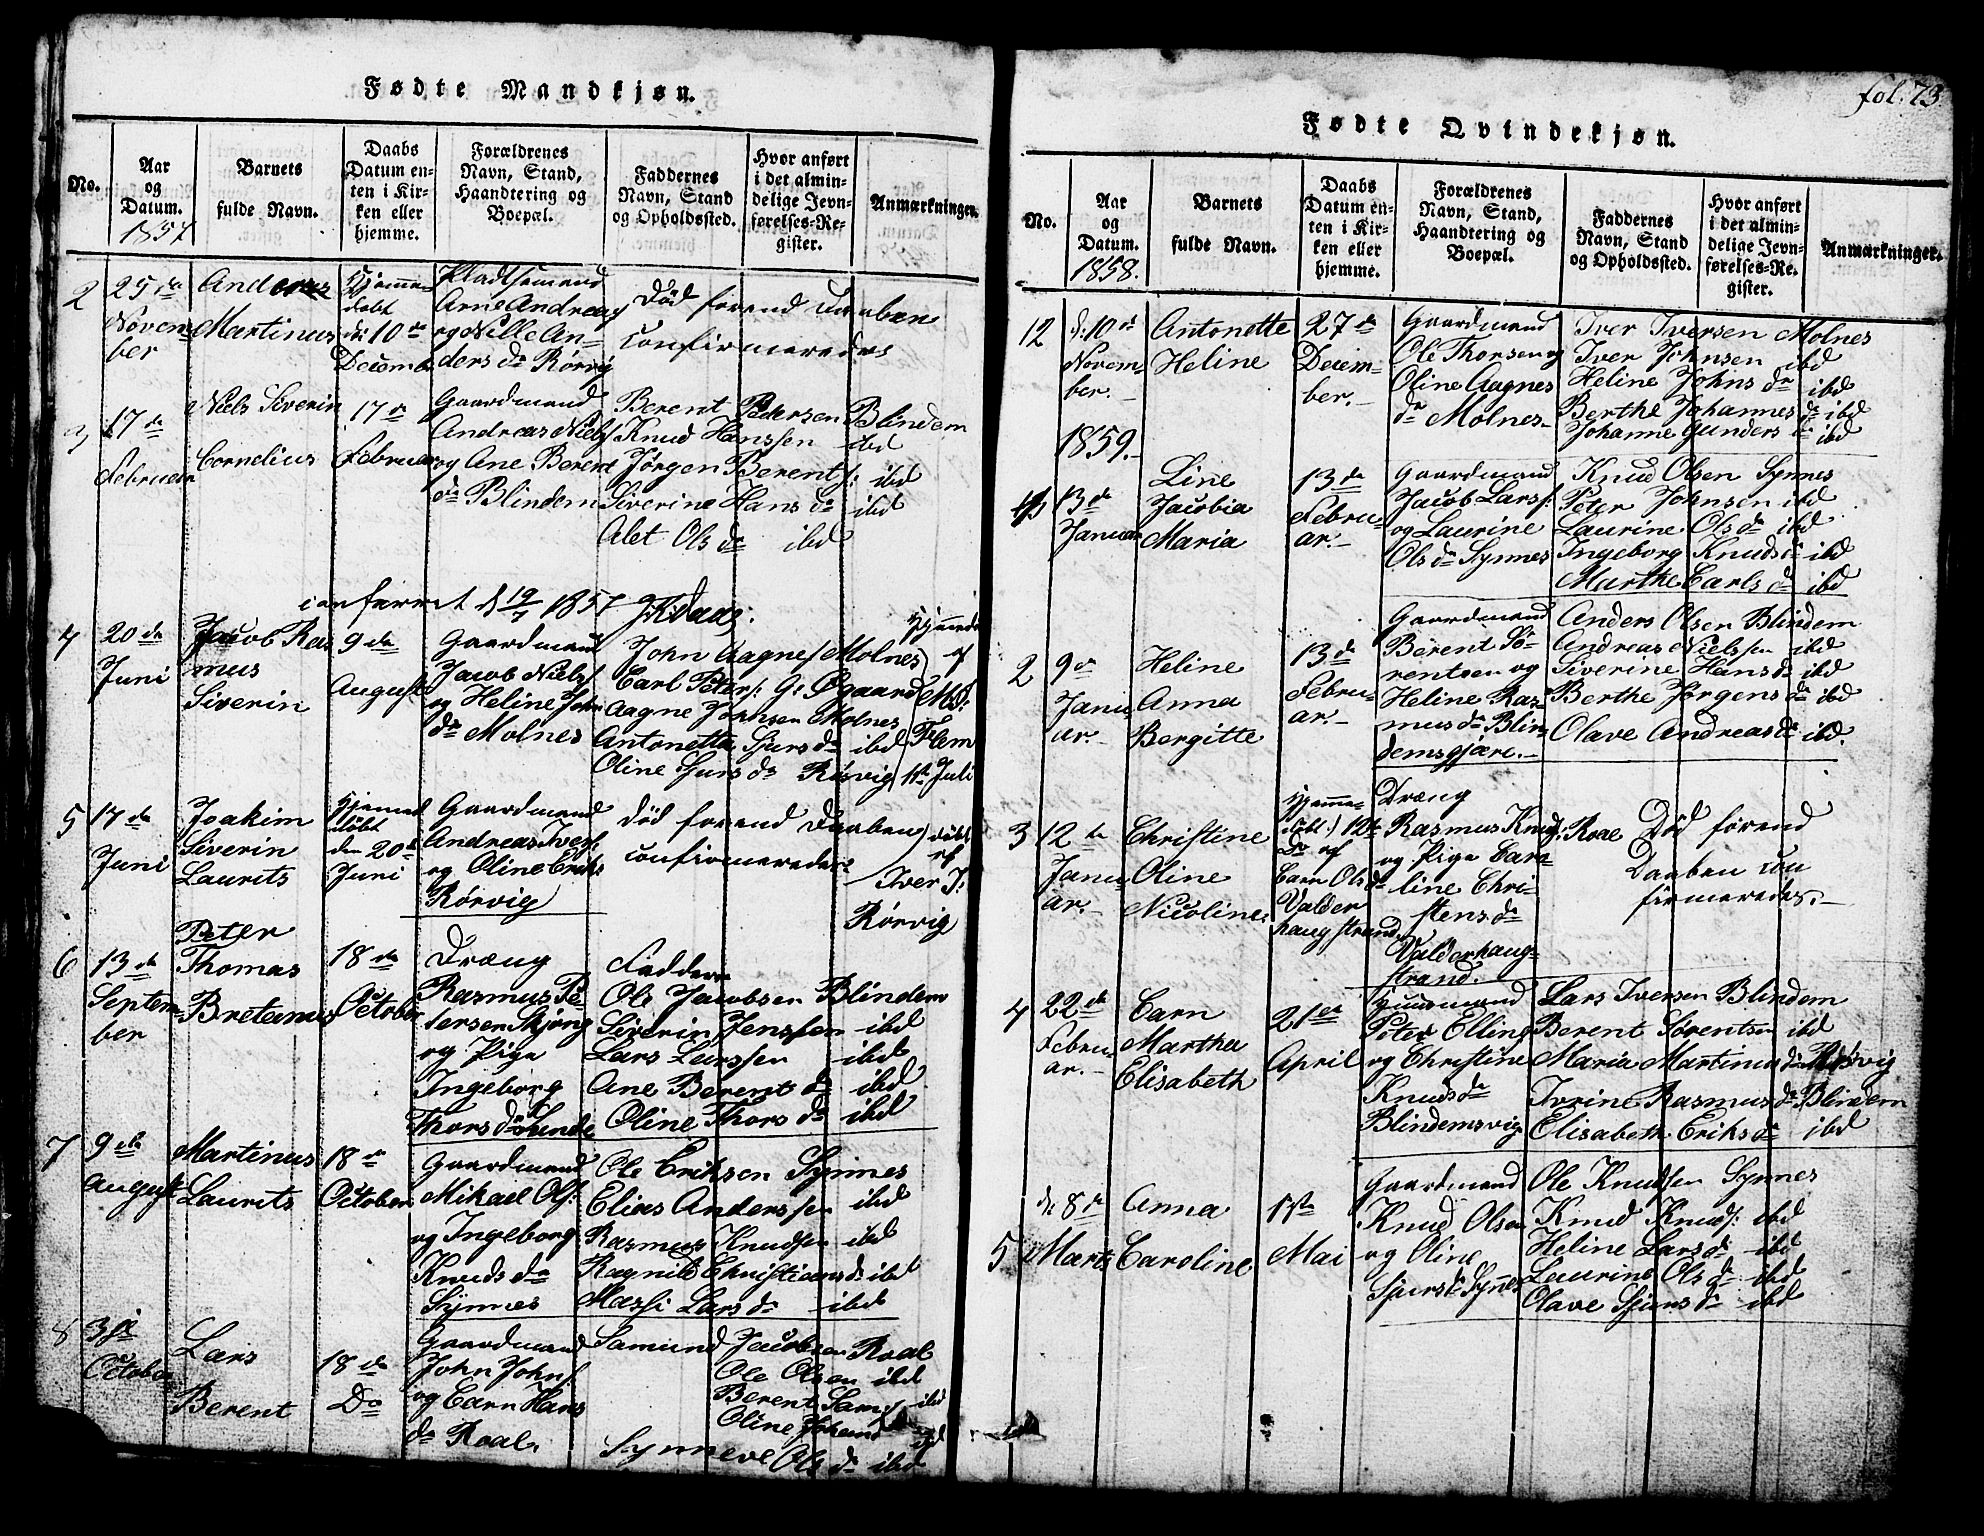 Fødte Mandkjøn.
No.
Aar
og
Datum.
1857
Barnets
fulde Navn.
Daabs
Datum en-
ten i Kir-
ken eller
hjemme.
Forældrenes
Navn, Stand,
Haandtering og
Boepæl.
Faddernes
Navn, Stand
og Opholdssted.
Hvor anført
i det almin-
delige Jevn-
førelses-Re-
gister.
Anmærkninger.
2
25de
Novem-
ber
Andreas
Martinus
Hjemme-
døbt
d: 10de
Decemb
Pladsemand
Arne Andreas
og Nille An-
ders dr Rørvig
Død forend Daaben
confirmeredes
3
17de
Februar
Niels Siverin
Cornelius
17de
Februar
Gaardmand
Andreas Niels
og Ane Berent
dr Blindem
Berent Pedersen Blindem
Knud Hanssen ibd
Jørgen Berents: ibd
Siverine Hans dr ibd
Alet Ols dr ibd
conferert d 19/7 1857 J.K. Daae.
4
20de
Juni
Jacob Ras
mus
Siverin
9de
August
Gaardmand
Jacob Niels
og Heline John
dr Molnes
John Aagnes Molnes
Carl Peters: G: Øgaard
Aagne Johnsen Molnes
Antonette Sjurs dr ibd
Oline Sjurs dr Rørvig
Hjemmed
af
M.D:
Flem
11te Juli
5
17de
Juni
Joakim
Severin
Laurits
Hjemmed
døbt
den 20de
Juni
Gaardmand
Andreas Ivers
og Oline Eriks
Rørvig
Død forend Daaben
confirmeredes
døbt
af
Iver I:
Rørvig
6
13de
Septem-
ber
Peter
Thomas
Breteanus
18de
October
Dræng
Rasmus Pe-
tersen Skjong
og Pige
Ingeborg
Thors dr Lande
Faddere
Ole Jacobsen Blindem
Siverin Jenssen ibd
Lars Larssen ibd
Ane Berent dr ibd
Oline Thors dr ibd
7
9de
August
Martinus
Laurits
18de
October
Gaardmand
Mikael Ols:
og Ingeborg
Knuds dr
Synnes
Ole Eriksen Synnes
Elias Anderssen ibd
Rasmus Knudsen ibd
Ragnild Christians dr ibd
Massi Lars dr ibd
8
3di
October
Lars
Berent
18de
Do
Gaardmand
John Johns
og Carn Hans
dr Roal.
Samund Jacobsen Roal
Ole Olsen ibd
Berent Sams ibd
Oline
Synneve Ols dr ibd
fol. 73
Fødte Qvindekjøn.
No.
Aar
og
Datum.
1858.
Barnets
fulde Navn.
Daabs
Datum en-
ten i Kir-
ken eller
hjemme.
Forældrenes
Navn, Stand,
Haandtering og
Boepæl.
Faddernes
Navn, Stand
og Opholdssted.
Hvor anført
i det almin-
delige Jevn-
førelses-Re-
gister.
Anmærkninger.
12
d: 10de
Novem-
ber.
Antonette
Heline
27de
Decem-
ber.
Gaardmand
Ole Thorsen og
Oline Aagnes
dr Molnes
Iver Iversen Molnes
Iver Johnsen ibd
Heline Johns dr ibd
Berthe Johannes dr ibd
Johanne Gunders dr ibd
1859.
1
13de
Januar
Line
Jacobia
Maria
13de
Febru-
ar.
Gaardmand
Jacob Lars:
og Laurine
Ols dr Synnes
Knud Olsen Synnes
Peter Johnsen ibd
Laurine Ols dr ibd
Ingeborg Knuds dr ibd
Marthe Carls dr ibd
2
9de
Janu-
ar.
Heline
Anna
Bergitte
13de
Febru-
ar.
Gaardmand
Berent Sø-
rentsen og
Heline Ras-
mus dr Blin-
demsgjære.
Anders Olsen Blindem
Andreas Nielssen ibd
Siverine Hans dr ibd
Berthe Jørgens dr ibd
Olave Andreas dr ibd.
3
12te
Janu-
ar.
Christine
Oline
Nicoline
Hjemme-
døbt: 12te
Do af
Carn Ols dr
Valder
haug strand
Dræng
Rasmus Knuds: Roal
og Pige Caro-
line Chri-
stens dr
Valderhaug-
strand.
Død førend
Daaben con
firmeredes.
4
22de
Febru-
ar.
Carn
Martha
Elisabeth
21de
April
Huusmand
Peter Elling
og Christine
Knuds dr
Blindemsvig
Lars Iversen Blindem
Berent Sørentsen ibd
Maria Martinus dr Rørvig
Ivrine Rasmus dr Blindem
Elisabeth Eriks dr ibd
5
d: 8de
Marts
Anna
Caroline
1ste
Mai
Gaardmand
Knud Olsen
og Oline
Sjurs dr Synnes
Ole Knudssen Synnes
Knud Knuds: ibd
Heline Lars dr ibd
Laurine Ols dr ibd
Olave Sjurs dr ibd